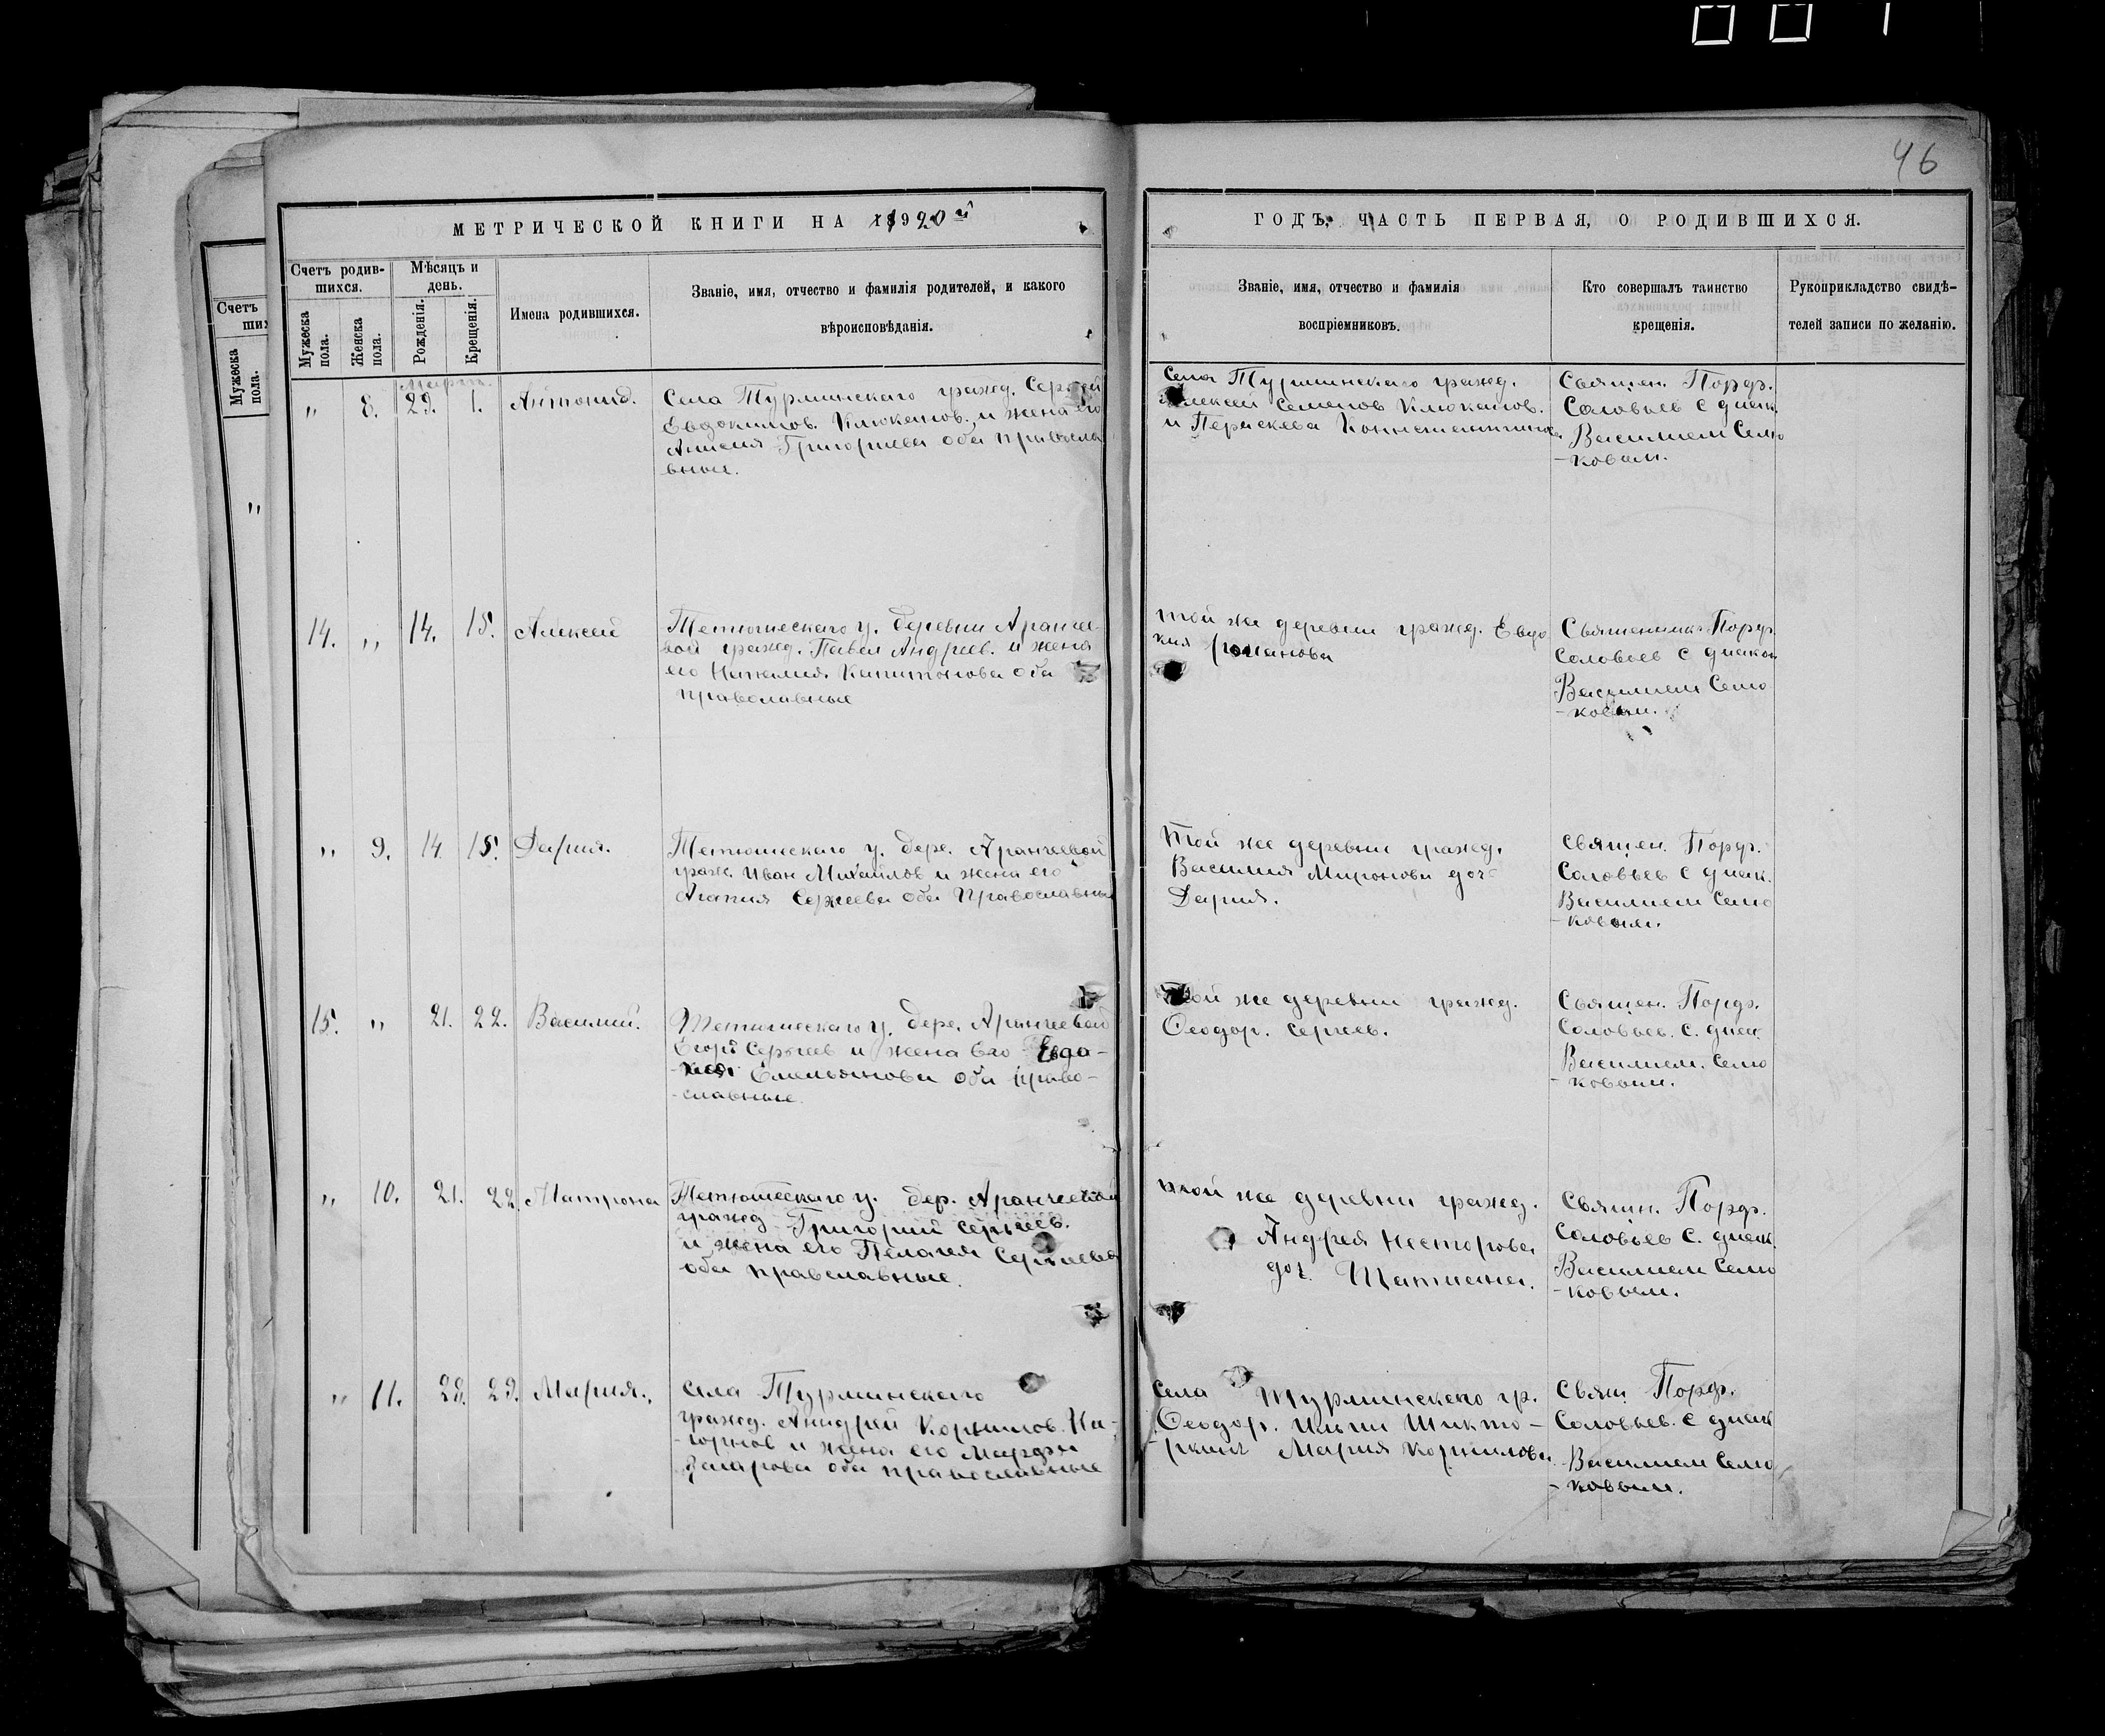 46
МЕТРИЧЕСКОЙ КНИГИ НА 1920й
ГОДЪ, ЧАСТЬ ПЕРВАЯ, О РОДИВШИХСЯ.
Счетъ родив-
шихся.
Мужеска пола.
Женска пола.
Мѣсяцъ и
день.
Рожденія.
Крещенія.
Имена родившихся.
Званіе, имя, отчество и фамилія родителей, и какого
вѣроисповѣданія.
Званіе, имя, отчество и фамилія
воспріемниковъ.
Кто совершалъ таинство
крещенія.
Рукоприкладство свидѣ-
телей записи по желанію.
Счетъ
ших
Мужеска
пола.
"
Март.
" 8. 29. 1. Антонид.
Села Турминскаго гражд. Сергей
Евдокимов. Клюканов. и жена его
Григориева оба правосла
вные.
Села Турминскаго гражд.
Алексей Семенов Клюканов.
и Параскева Константинова
Священ. Порф.
Соловьев с диак.
Василием Семо
-ковым.
14. " 14. 15. Алексей
Тетюшескаго у. деревни Аранчее-
вой гражд. Павел Андреев. и жена
его Наталия Капитонова оба
православные
той же деревни гражд. Евдо
кия Романова
Священник Порф.
Соловьев с диакон
Василием Семо
-ковым.
" 9. 14. 15. Дария.
Тетюшескаго у. дере. Аранчеевой
граж. Иван Михайлов и жена его
Агапия Сергеева оба Православны
Той же деревни гражд.
Василия Миронова доч-
Дария.
Священ. Порф.
Соловьев с диак.
Василием Семо
-ковым.
15. " 21. 22. Василий.
Тетюшескаго у. дере. Аранчеевой
Егорй Сергеев и жена его Евдо-
-кия Емельянова оба право-
-славные.
Той же деревни гражд.
Феодор. Сергеев.
Священ. Порф.
Соловьев. с. диак.
Василием. Семо
-ковым.
" 10. 21. 22. Матрона
Тетюшескаго у. дер. Аранчеевой
гражд Григорий Сергеев.
и жена его Пелагея Сергиева
оба православные.
той же деревни гражд.
Андрея Несторова
доч. Татиана.
Священ. Порф.
Соловьев с. диак.
Василием Семо
-ковым.
" 11. 28. 29. Мария.
Села Турминскаго
гражд. Андрей Корнилов.
и жена его Марфа
Захарова оба православные
Села Турминскаго гр.
Феодор. Ильин
Мария Корнилова.
Свящ Порф.
Соловьев. с диак
Василием Семо
-ковым.